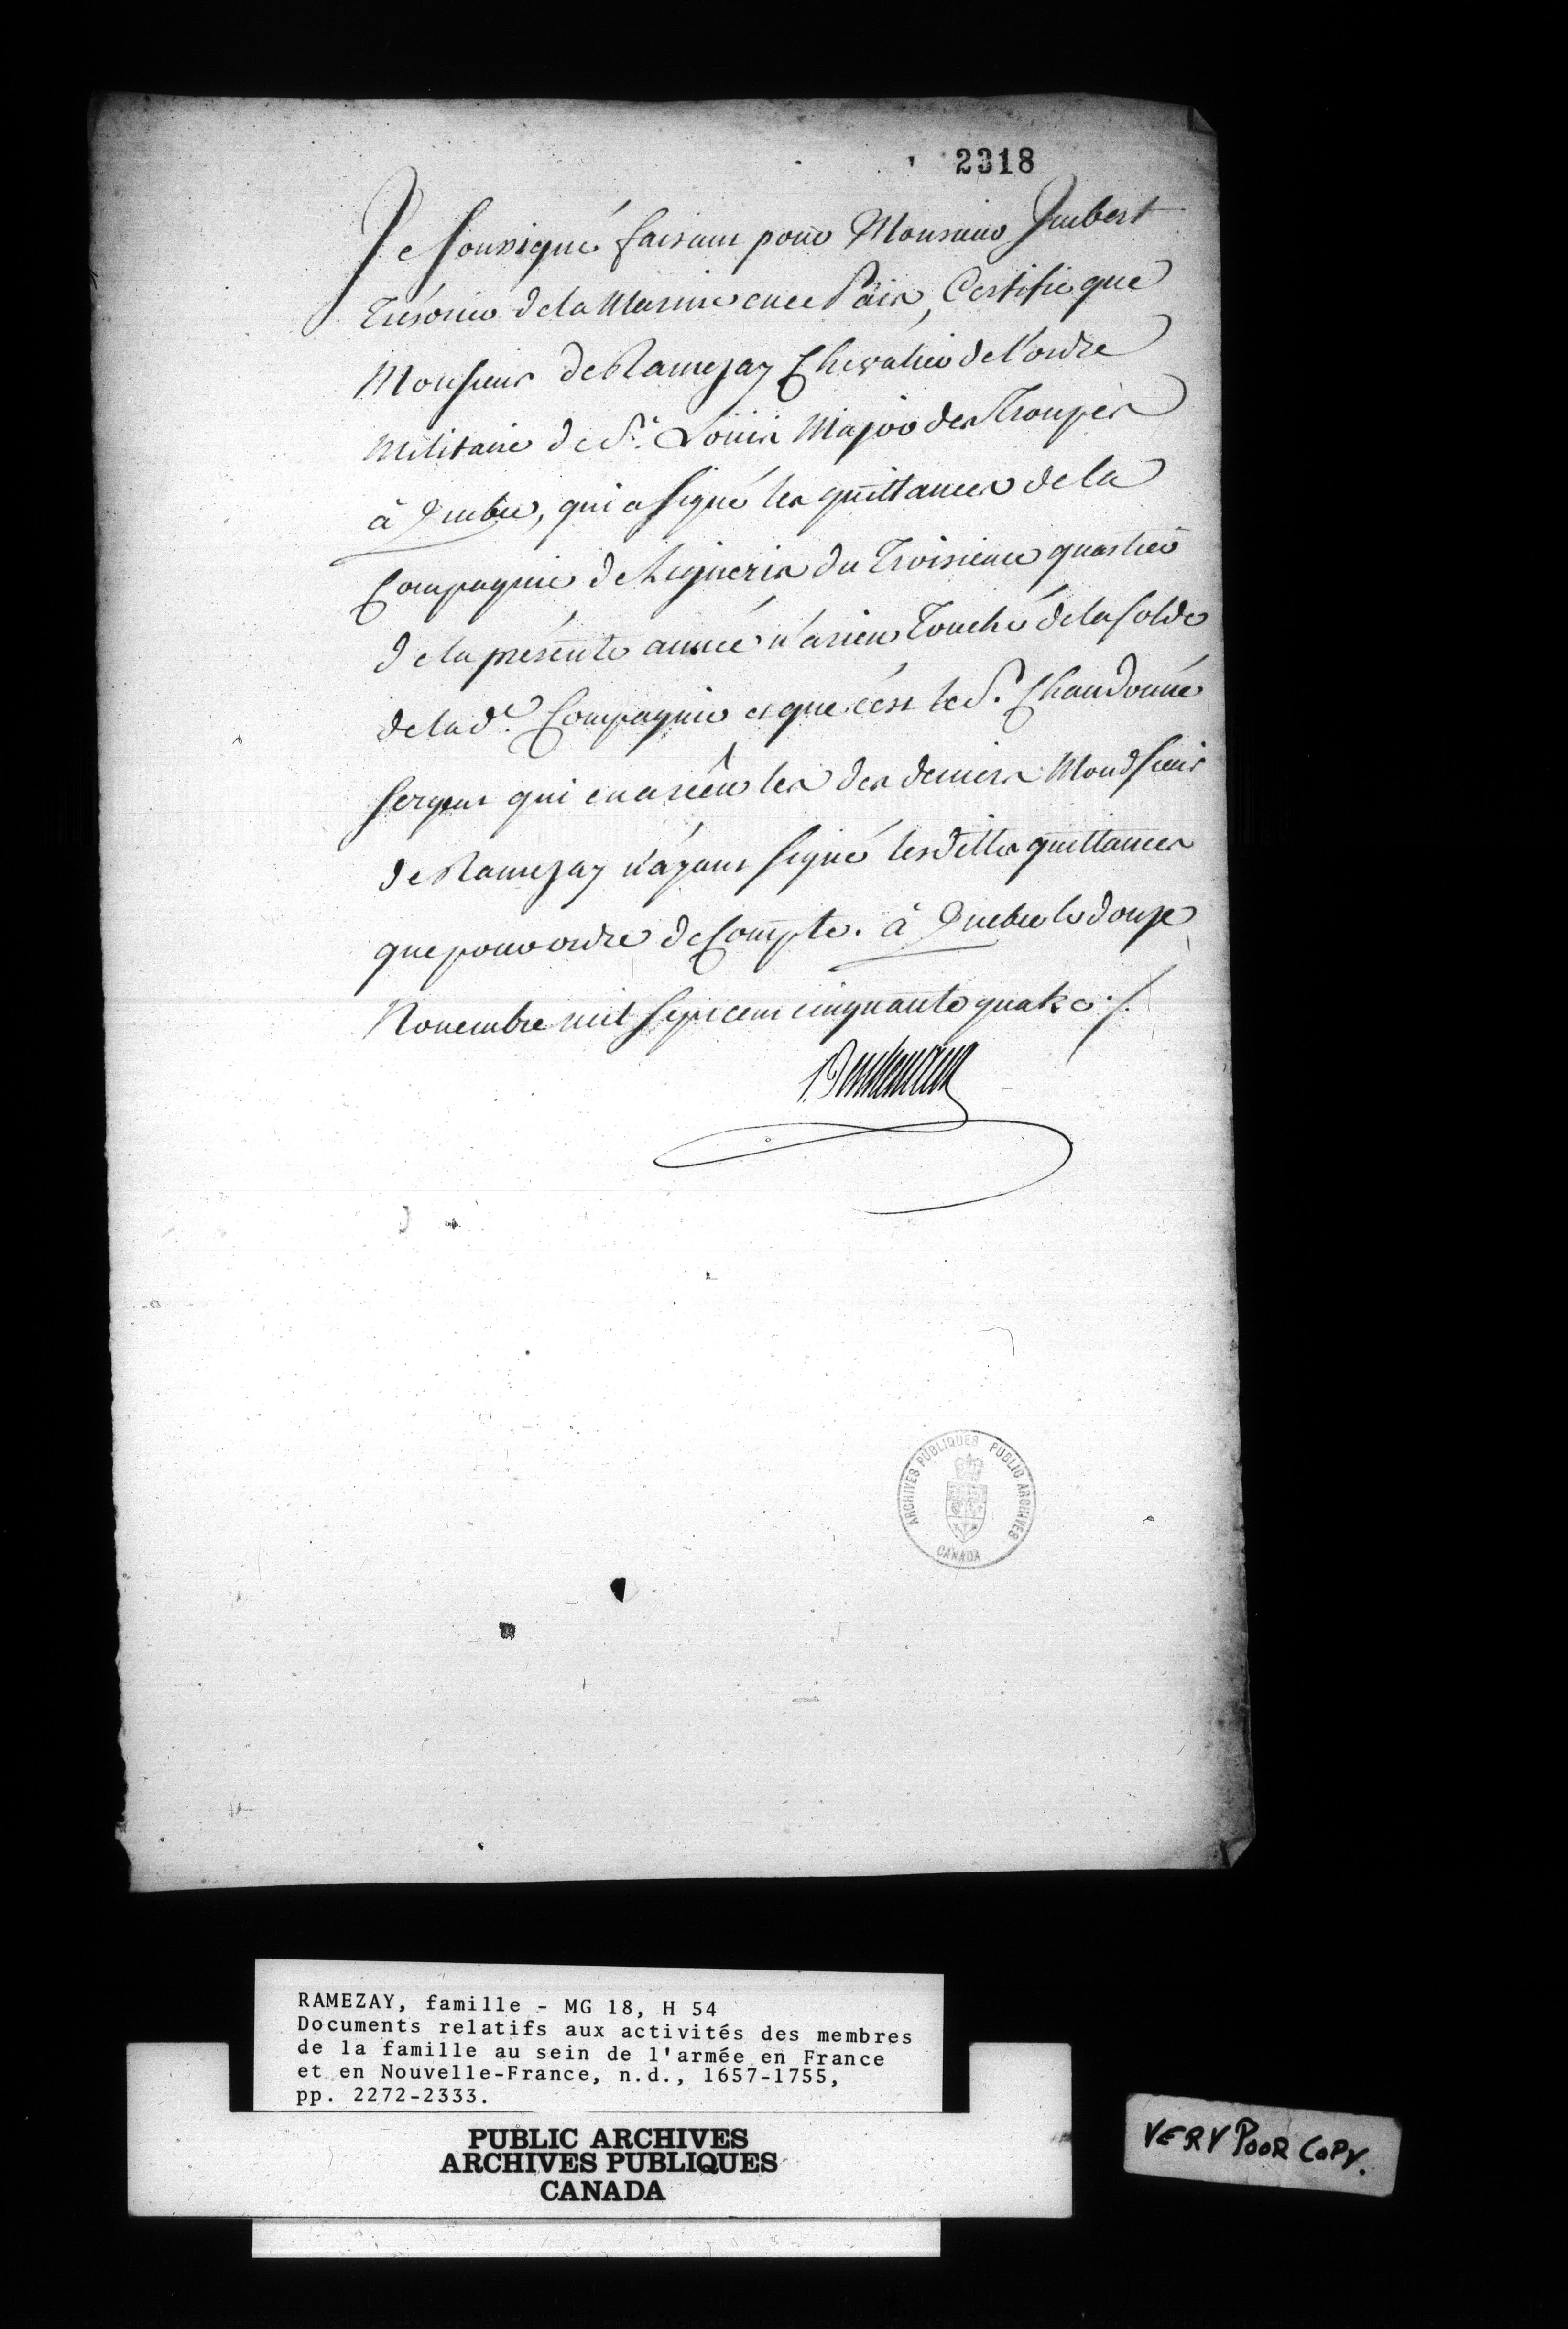 2318
Je Soussigné faisant pour Monsieur Imbert
Trésorier de la Marine en ce Païs, Certifie que
Monsieur de Ramezay Chevalier de l'ordre
Militaire de St. Louis Major des Troupes
à Quebec, qui a signé les quittances de la
Compagnie de Ligneris du Troisieme quartier
de la présente année n'a rien Touché de la solde
de la de. Compagnie et que c'est le S. Chaudonné
sergent qui en a reçû les des deniers Mondsieur
de Ramezay n'ayant signé lesdittes quittances
que pour ordre de Compte. à Quebec le douze
Novembre mil sept cent cinquante quatre ./.
ARCHIVES PUBLIQUES PUBLIC ARCHIVES
CANADA
RAMEZAY, famille - MG 18, H 54
Documents relatifs aux activités des membres
de la famille au sein de l'armée en France
et en Nouvelle-France, n.d., 1657-1755,
pp. 2272-2333.
PUBLIC ARCHIVES
ARCHIVES PUBLIQUES
CANADA
VERY POOR COPY.